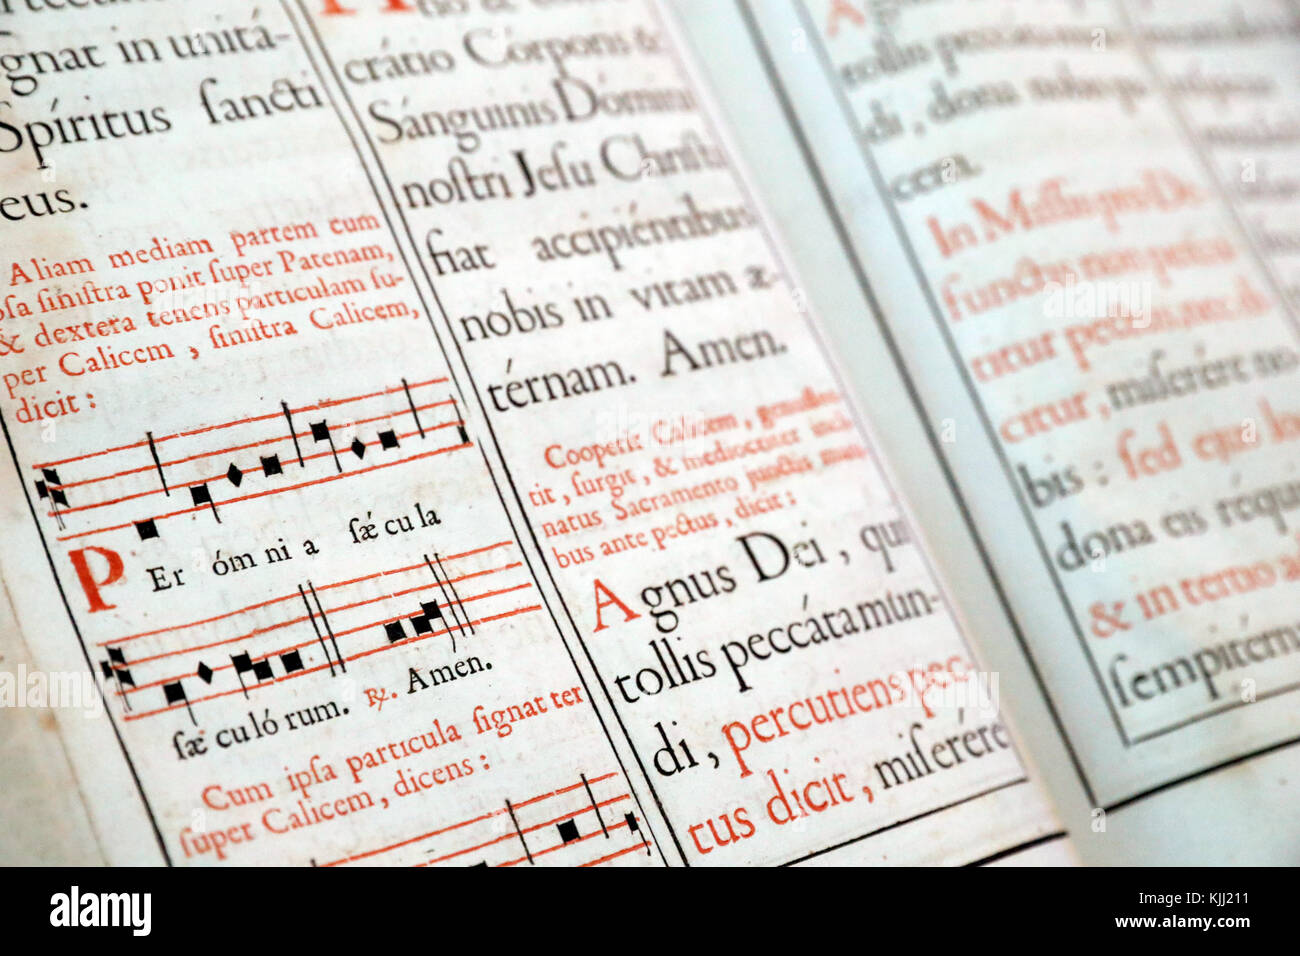 gnat in unitá-
Spíritus ſancti
eus.
Aliam mediam partem cum
ipſa ſiniſtra ponit ſuper Patenam,
& dextera tenens particulam ſu-
per Calicem, ſiniſtra Calicem,
dicit:
PEr ómnia ſæcula
ſæculórum. ℟. Amén.
Cum ipſa particula ſignat ter
ſuper Calicem, dicens:
crátio Córporis &
Sánguinis Dómini
noſtri Jeſu Chriſti
fiat accipiéntibus
nobis in vitam æ-
térnam. Amen.
Cooperit Calicem, genuflec-
tit, ſurgit, & mediocriter incli-
natus Sacramento junctis mani-
bus ante pectus, dicit:
Agnus Dei, qui
tollis peccáta mun-
di, percutiens pec-
tus dicit, miſerére
tollis peccáta mun-
di, dona nobis pa-
cem.
In Miſſis pro De-
functis non percu-
titur pectus, nec di-
citur, miſerére no-
bis: ſed ejus lo-
dona eis réqui
& in tertio ad
ſempitérn
alamy
Image ID: KJJ211
www.alamy.com